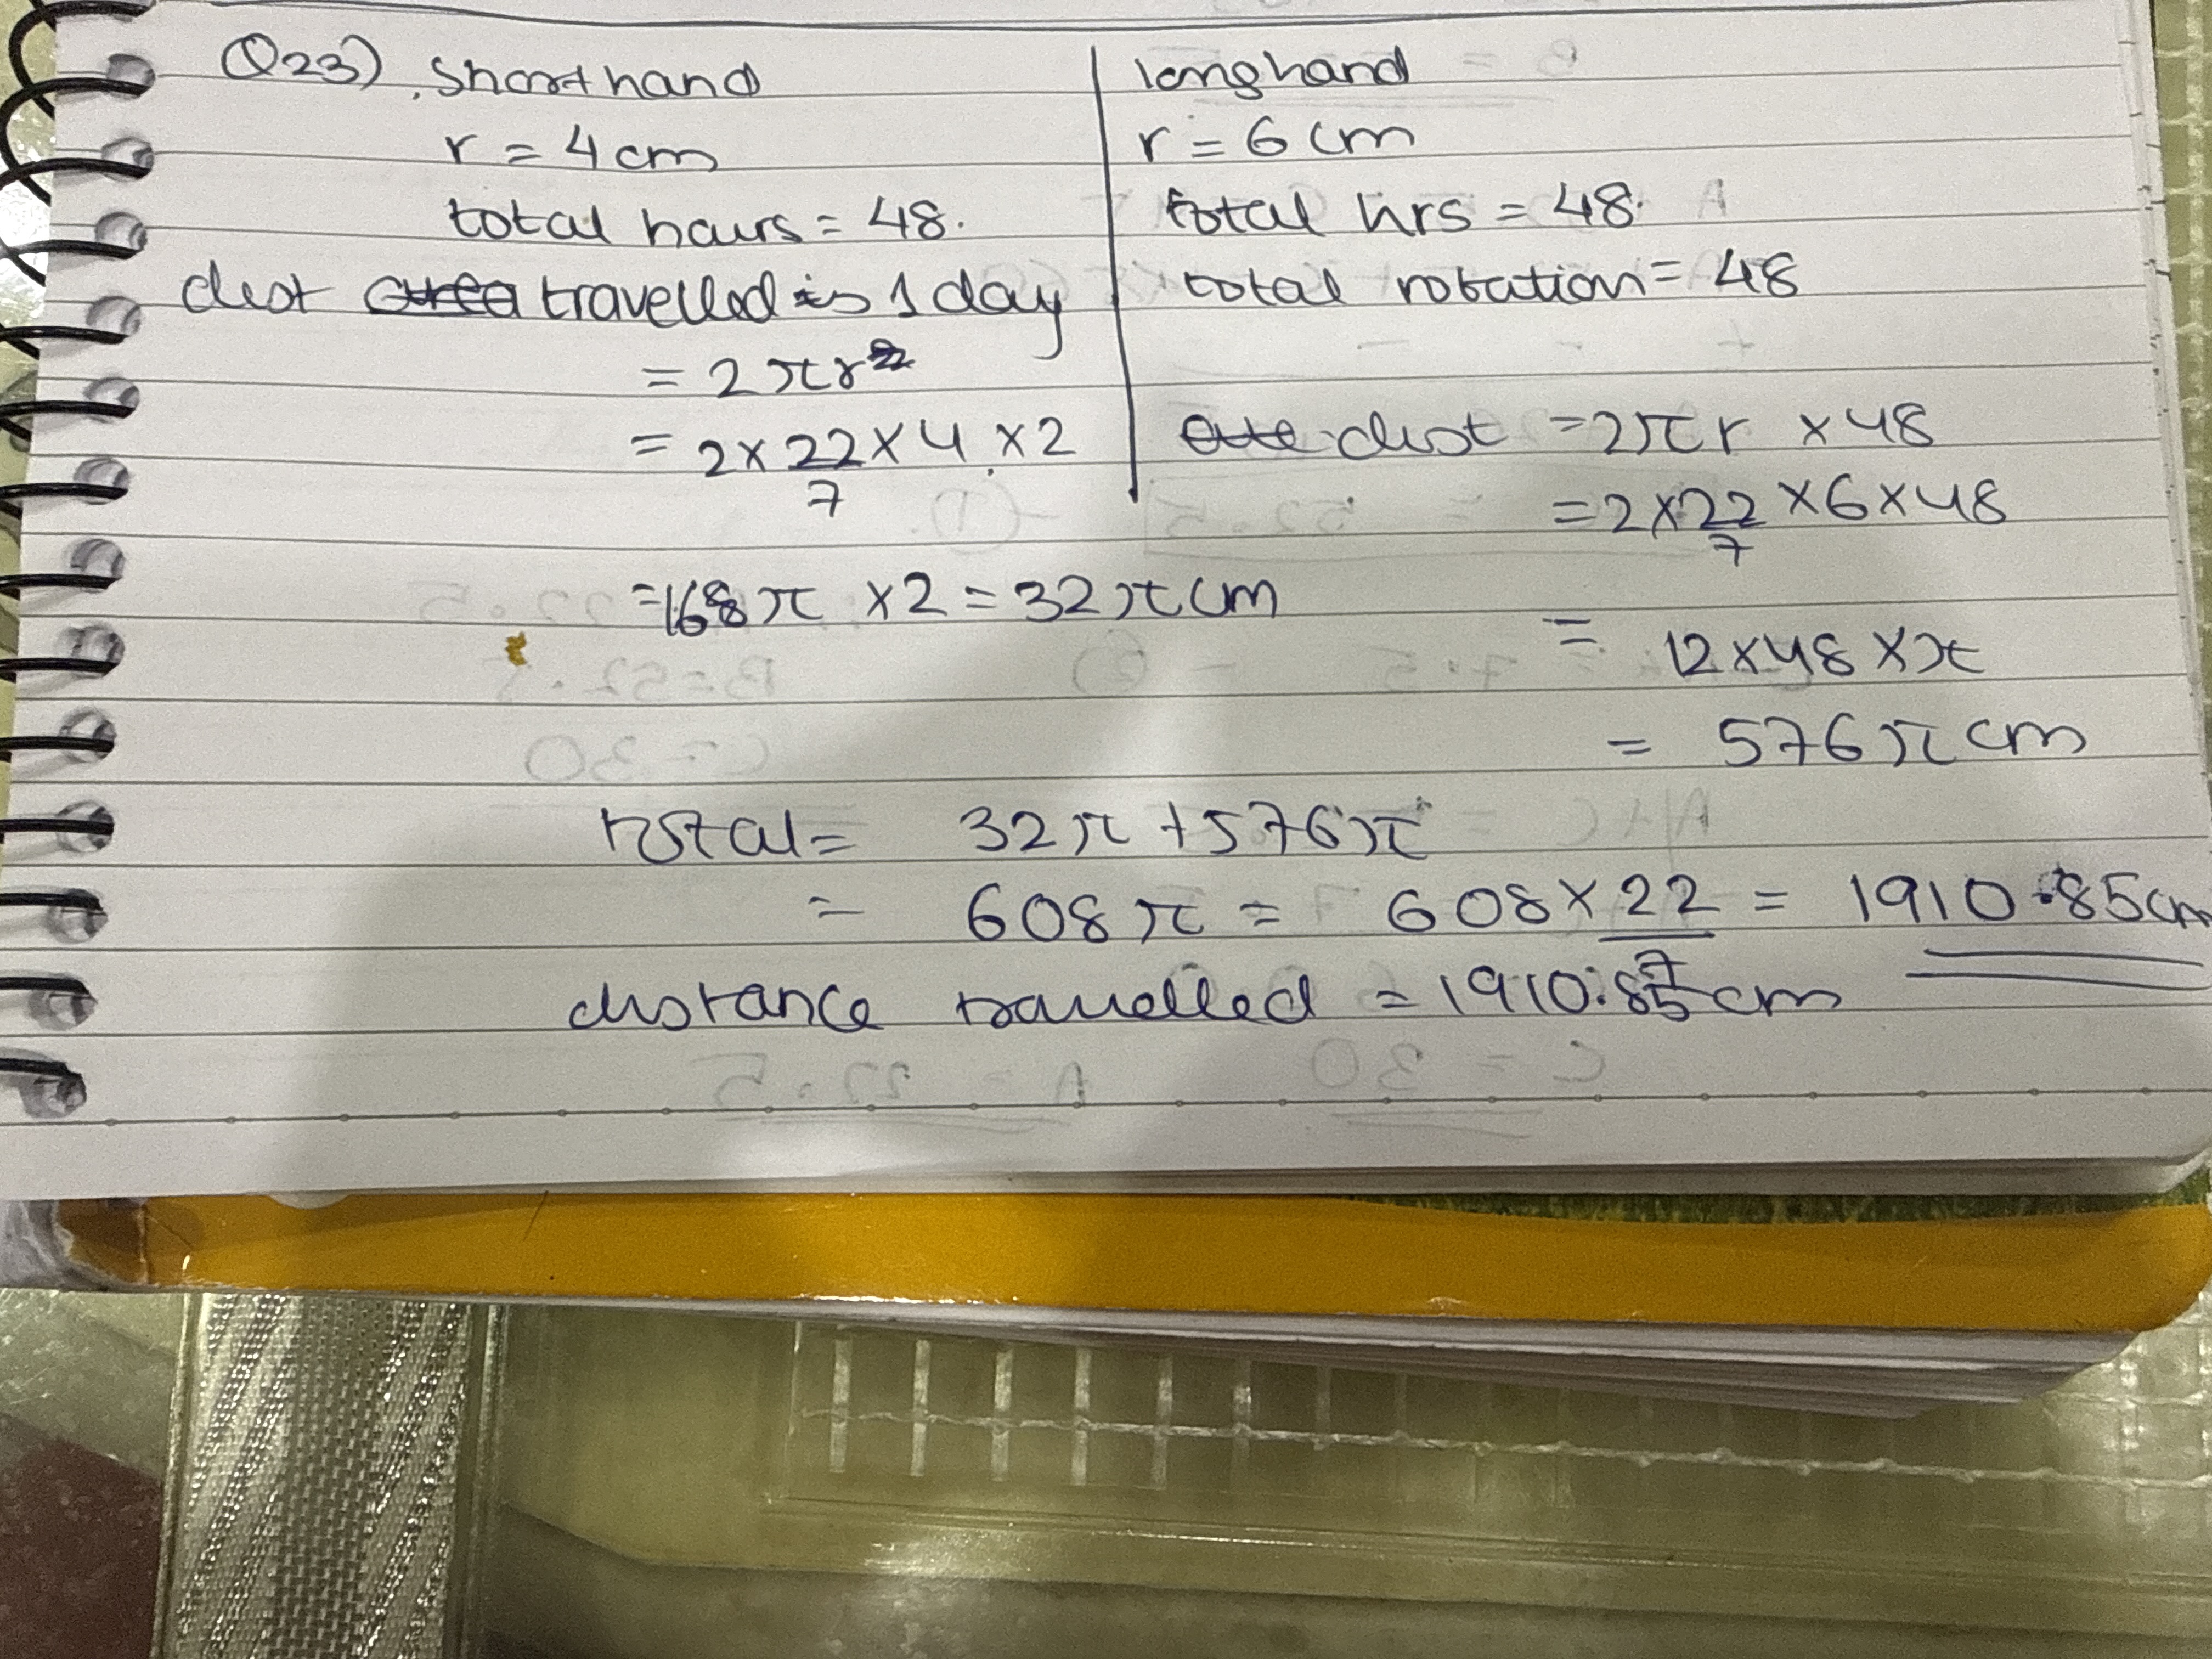 Q23) Short hand
r = 4 cm
total hours = 48.
dist travelled is 1 day
= 2πr
= 2 × 22/7 × 4 × 2
= 16π × 2 = 32π cm
long hand
r = 6 cm
total hrs = 48.
total rotation = 48
dist = 2πr × 48
= 2 × 22/7 × 6 × 48
= 12 × 48 × π
= 576π cm
total = 32π + 576π
= 608π = 608 × 22/7 = 1910.85cm
distance travelled = 1910.85 cm